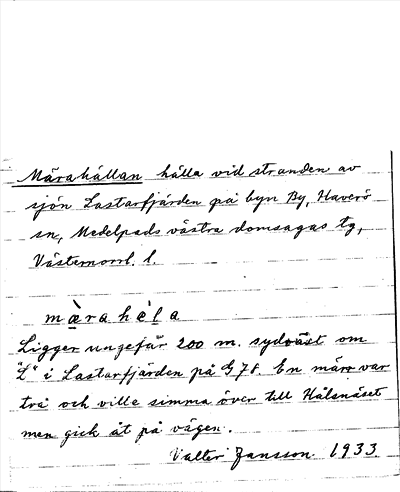 Märahällan hälla vid stranden av
sjön Lastarfjärden på byn By, Haverö
sn, Medelpads västra domsagas tg,
Västernorrl. l.
mæ̀rahèl̥a
Ligger ungefär 200 m. sydväst om
"L" i Lastarfjärden på G 78. En märr var
trä och ville simma över till Hålsnäset
men gick åt på vägen.
Valter Jansson 1933